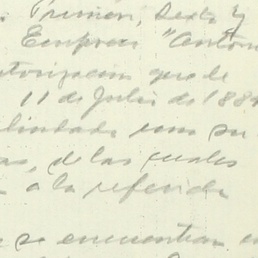 . Primero, Sexto y
Empresa "Anton
utorizacion que le
11 de Julio de 188
lindado con su
as, de las cuales
a la referida
se encuentran e